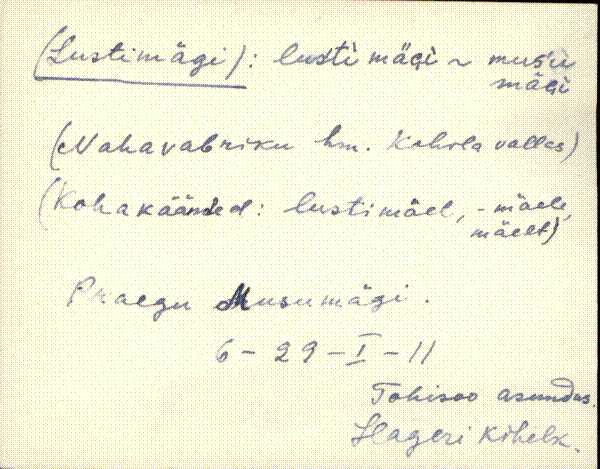 (Lustimägi): lus̀ti mäɢi ~ musu
mäɢi
(Nahavabriku hm. Kohila vallas)
(Kohakäänded: lustimäel, -mäele,
mäelt)
Praegu Musumägi.
6-29-I-11
Tohisoo asundus.
Hageri kihelk.